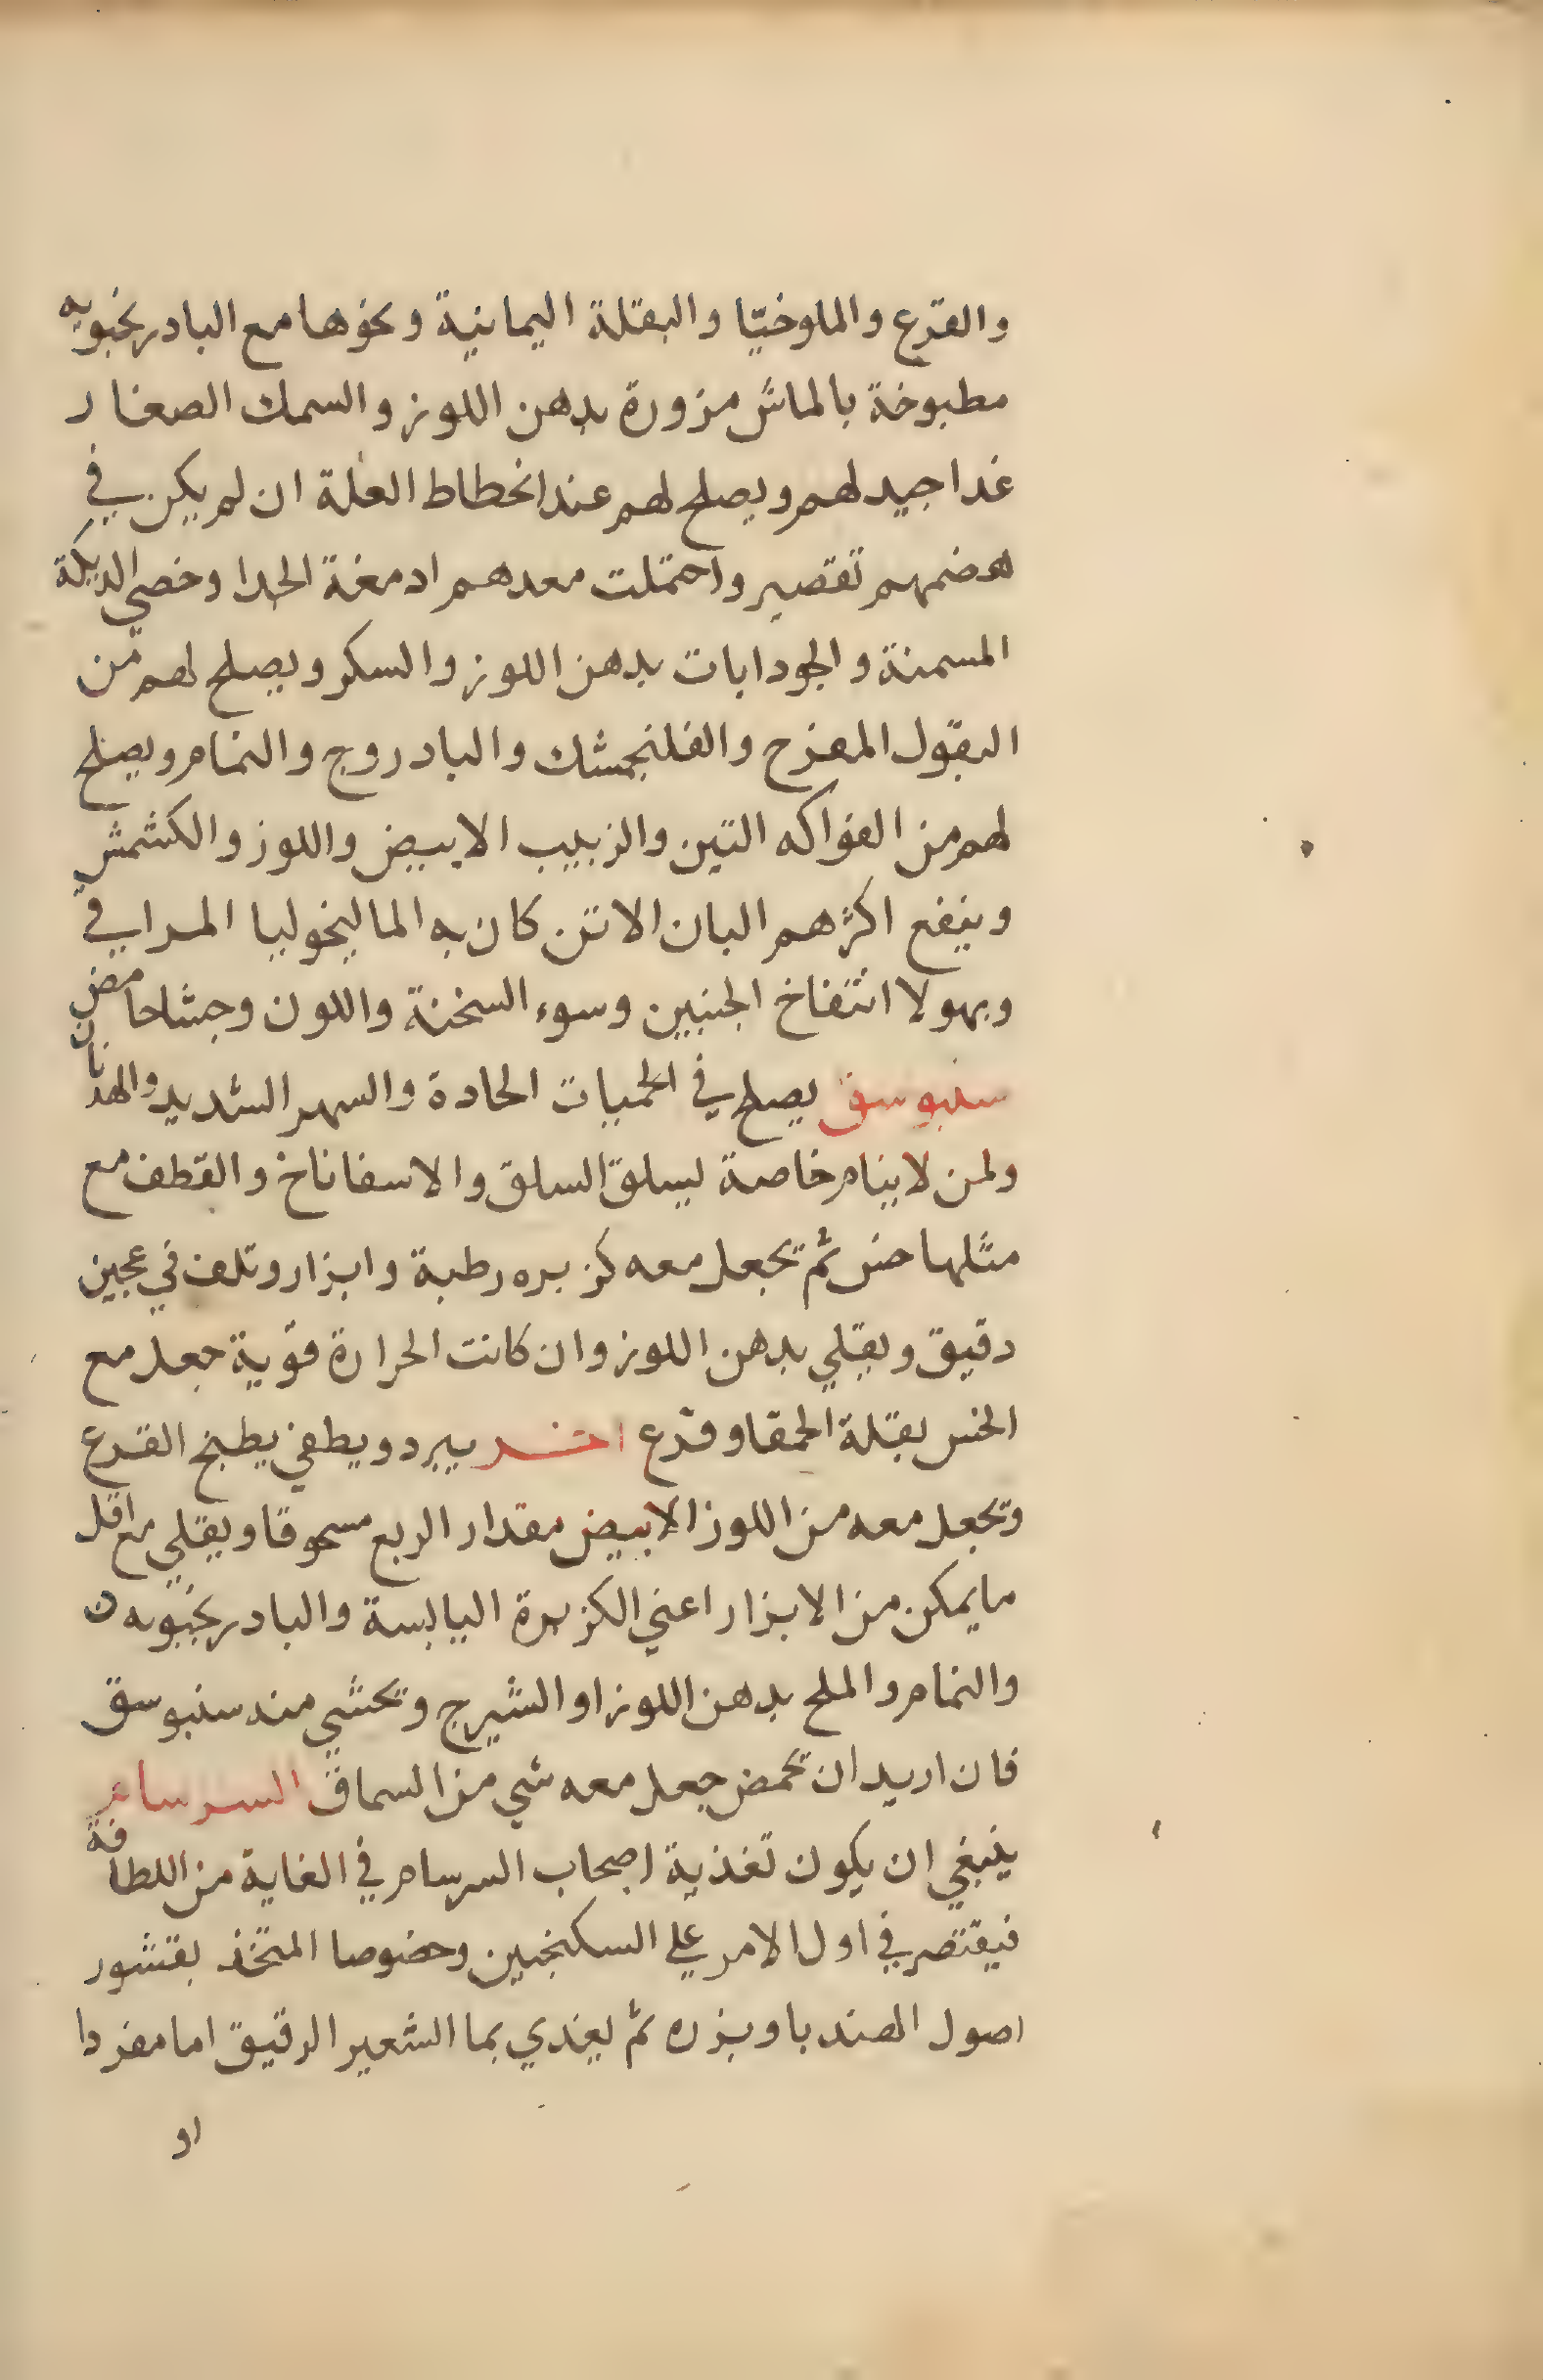 والقرع والملوخيّا والبقلة اليمانية ونحوها مع البادرنجبويه
مطبوخة بالماش مزورة بدهن اللوز والسمك الصغار
غدا جيد لهم ويصلح لهم عند انحطاط العلة ان لم يكن في
هضمهم تقصير واحتملت معدهم ادمغة الجدا وخصي الديكة
المسمنة والجودابات بدهن اللوز والسكر ويصلح لهم من
البقول المفرح والفلنجمشك والبادروج والنمام ويصلح
لهم من الفواكه التين والزبيب الابيض واللوز والكشمش
وينفع اكثرهم البان الاتن كان به الماليخوليا المراقي
وبهولا انتفاخ الجنبين وسوء السخنة واللون وجشا حامض
سنبوسق يصلح في الحميات الحادة والسهر الشديد والهذيان
ولمن لا ينام خاصة ليسلق السلق والاسفاناخ والقطف مع
مثلها خس ثم تجعل معه كزبره رطبة وابزار وتلف في عجين
دقيق ويقلي بدهن اللوز وان كانت الحرارة قوية جعل مع
الخس بقلة الحمقا وقرع اخر يبرد ويطفي يطبخ القرع
وتجعل معه من اللوز الابيض مقدار الربع مسحوقا ويقلي مع اقل
ما يمكن من الابزار اعني الكزبرة اليابسة والبادرنجبويه ن
والنمام والملح بدهن اللوز او الشيرج وتحشي منه سنبوسق
فان اريد ان تحمض جعل معه شي من السماق السرسام
ينبغي ان يكون تغذية اصحاب السرسام في الغاية من اللطافة
فيقتصر في اول الامر علي السكنجبين وخصوصا المتخذ بقشور
اصول الهندبا وبزره ثم يغدي بما الشعير الرقيق اما مفردا
او